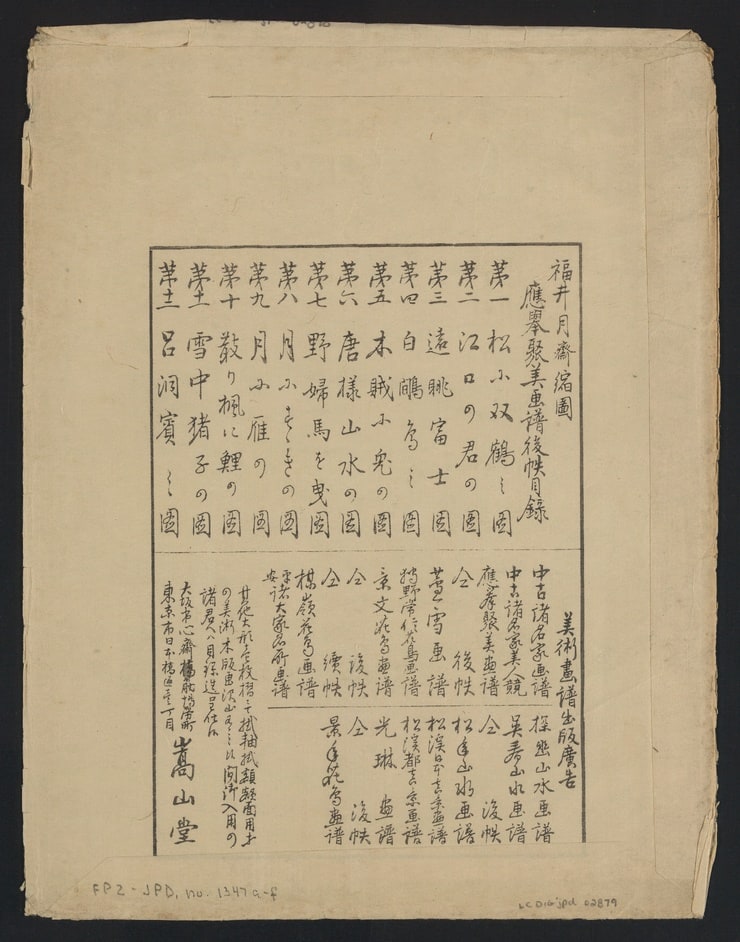 福井月齋縮圖
應擧聚美画譜後帙目録
第一 松に双鶴之圖
第二 江口の君の圖
第三 遠眺富士圖
第四 白鷴鳥之圖
第五 木賊に兎の圖
第六 唐様山水の圖
第七 野婦馬を曳圖
第八 月にすゝきの圖
第九 月に雁の圖
第十 散り楓に鯉の圖
第十一 雪中猪子の圖
第十二 呂洞賓之圖
美術畫譜出版廣告
中古諸名家画譜
中古諸名家美人競
應擧聚美画譜
仝 後帙
蘆雪画譜
狩野常信花鳥画譜
景文花鳥畫譜
仝 後帙
仝 續帙
楳嶺花鳥画譜
平安諸大家名所画譜
探幽山水画譜
吴春山水画譜
仝 後帙
松年山水画譜
松溪
松溪都名所画譜
光琳画譜
仝 後帙
景年花鳥畫譜
其他大形色板摺ニテ掛軸掛額額面用
の美術木版画沢山有之候間御入用の
諸君ハ目録進呈仕候
大坂市心齋橋
東京市日本橋區
嵩山堂
FP2-JPD, no. 1347 a-f
LC DIG jpd 02879